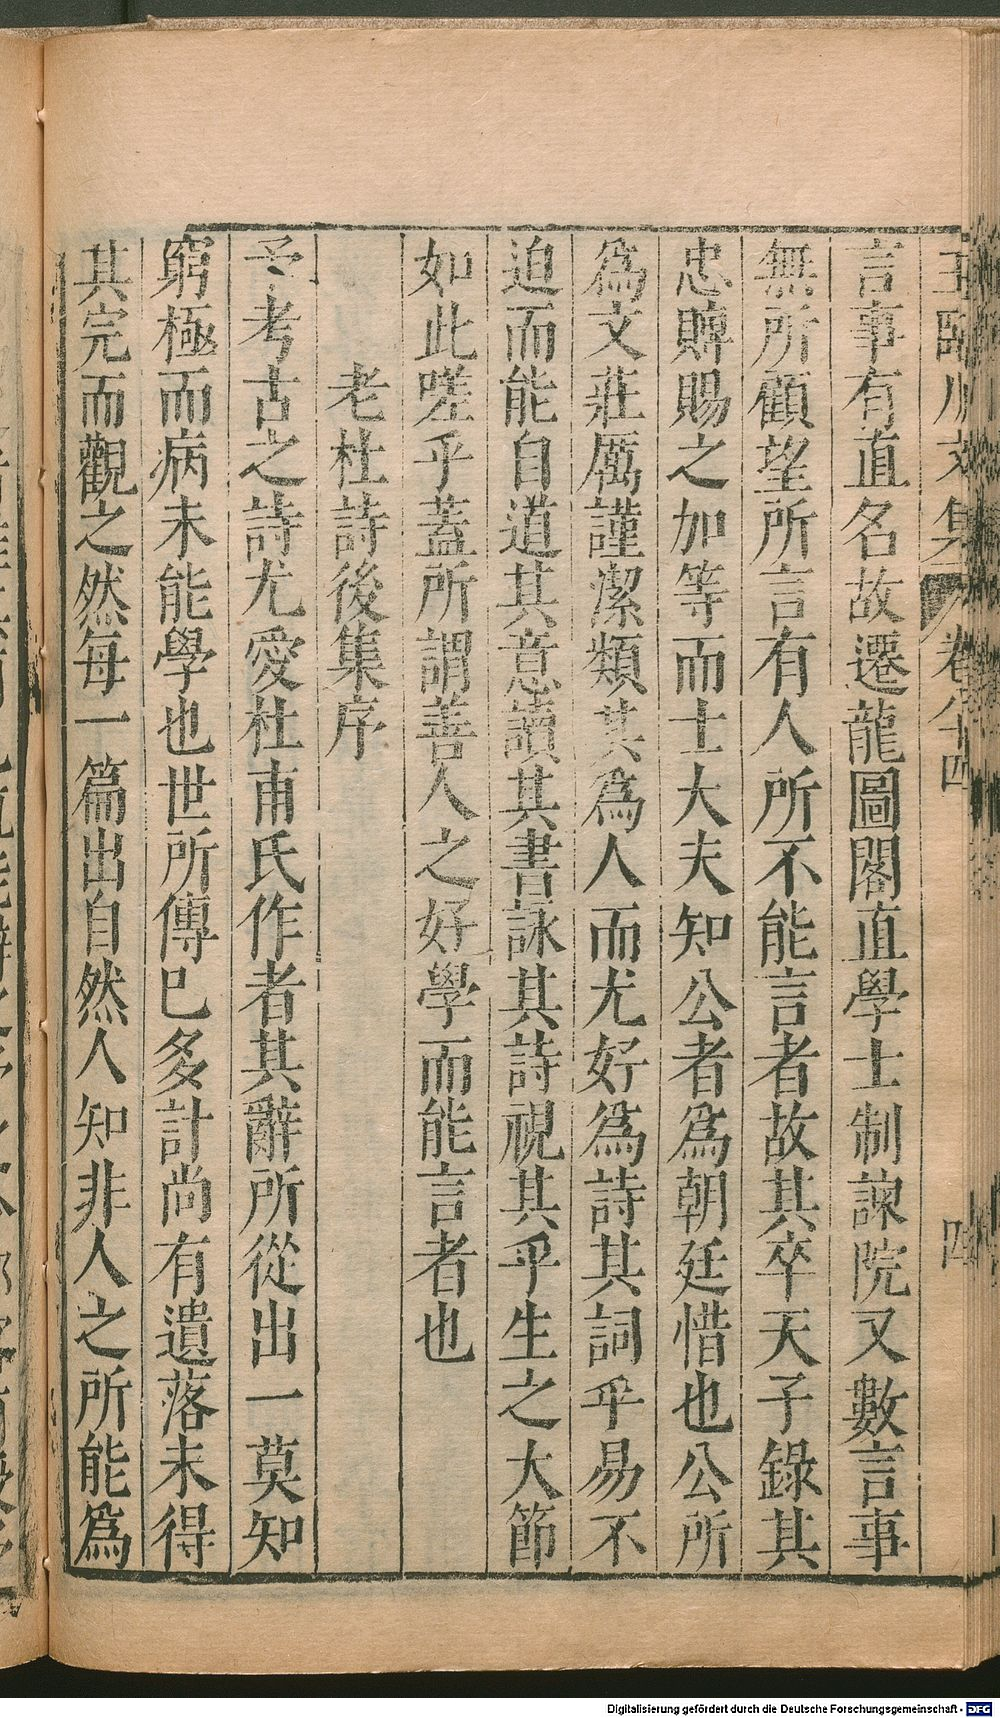 王臨川文集 卷八十四 四
言事有直名故遷龍圖閣直學士制諫院又數言事
無所顧望所言有人所不能言者故其卒天子錄其
忠賻賜之加等而士大夫知公者爲朝廷惜也公所
爲文莊厲謹潔類其爲人而尤好爲詩其詞平易不
迫而能自道其意讀其書詠其詩視其平生之大節
如此嗟乎蓋所謂善人之好學而能言者也
老杜詩後集序
予考古之詩尤愛杜甫氏作者其辭所從出一莫知
窮極而病未能學也世所傳巳多計尚有遺落未得
其完而觀之然每一篇出自然人知非人之所能爲
Digitalisierung gefördert durch die Deutsche Forschungsgemeinschaft - DFG